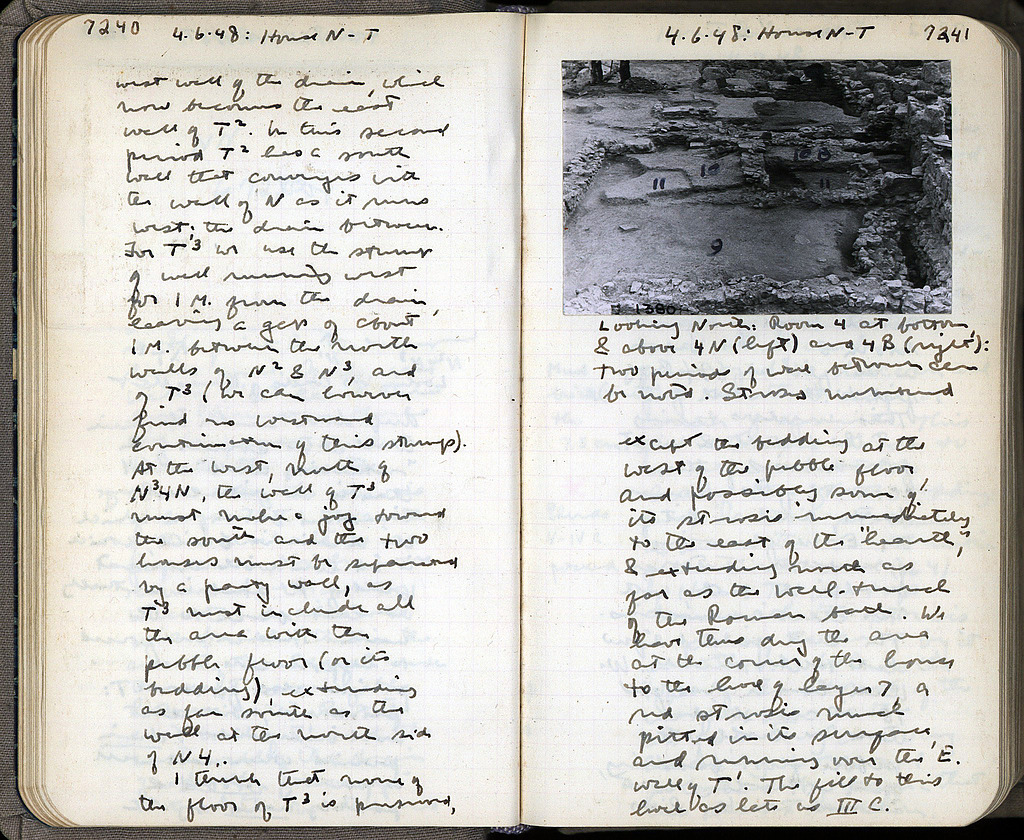 7240
4·6·48: House N-T
west wall of the drain, which
now becomes the east
wall of T². In this second
period T² has a south
wall that converges with
the wall of N as it runs
west; the drain between.
For T³ we use the stump
of wall running west
for 1 M. from the drain,
leaving a gap of about
1 M. between the north
walls of N² & N³, and
of T³ (we can however
find no westward
continuation of this stump).
At the west, north of
N³4N, the wall of T³
must make a jog toward
the south and the two
houses must be separated
by a party wall, as
T³ must include all
the area with the
pebble floor (or its
bedding), extending
as far south as the
wall at the north side
of N4.
I think that none of
the floor of T³ is preserved,
4·6·48: House N-T
7241
11
10
10 B
11
9
1380
Looking North: Room 4 at bottom,
& above 4N (left) and 4B (right):
two periods of wall between can
be noted. Stroses numbered
except the bedding at the
west of the pebble floor
and possibly some of
its strosis immediately
to the east of the "hearth",
& extending north as
far as the wall-trench
of the Roman bath. We
have thus dug the area
at the corner of the house
to the level of layer 7, a
red strosis much
pitted in its surface,
and running over the E.
wall of T¹. The fill to this
level as late as III C.